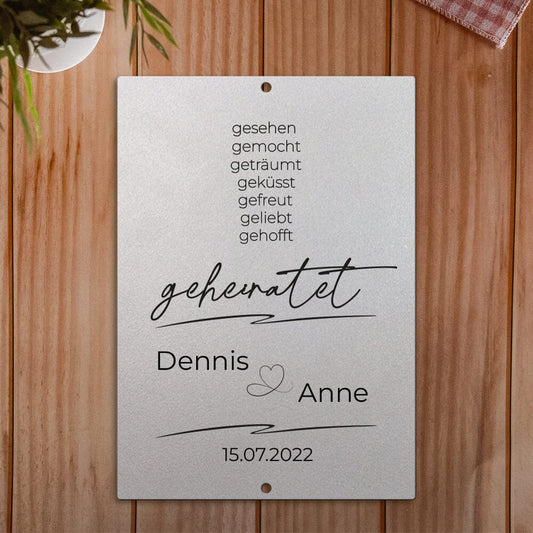 gesehen
gemocht
geträumt
geküsst
gefreut
geliebt
gehofft
geheiratet
Dennis
Anne
15.07.2022